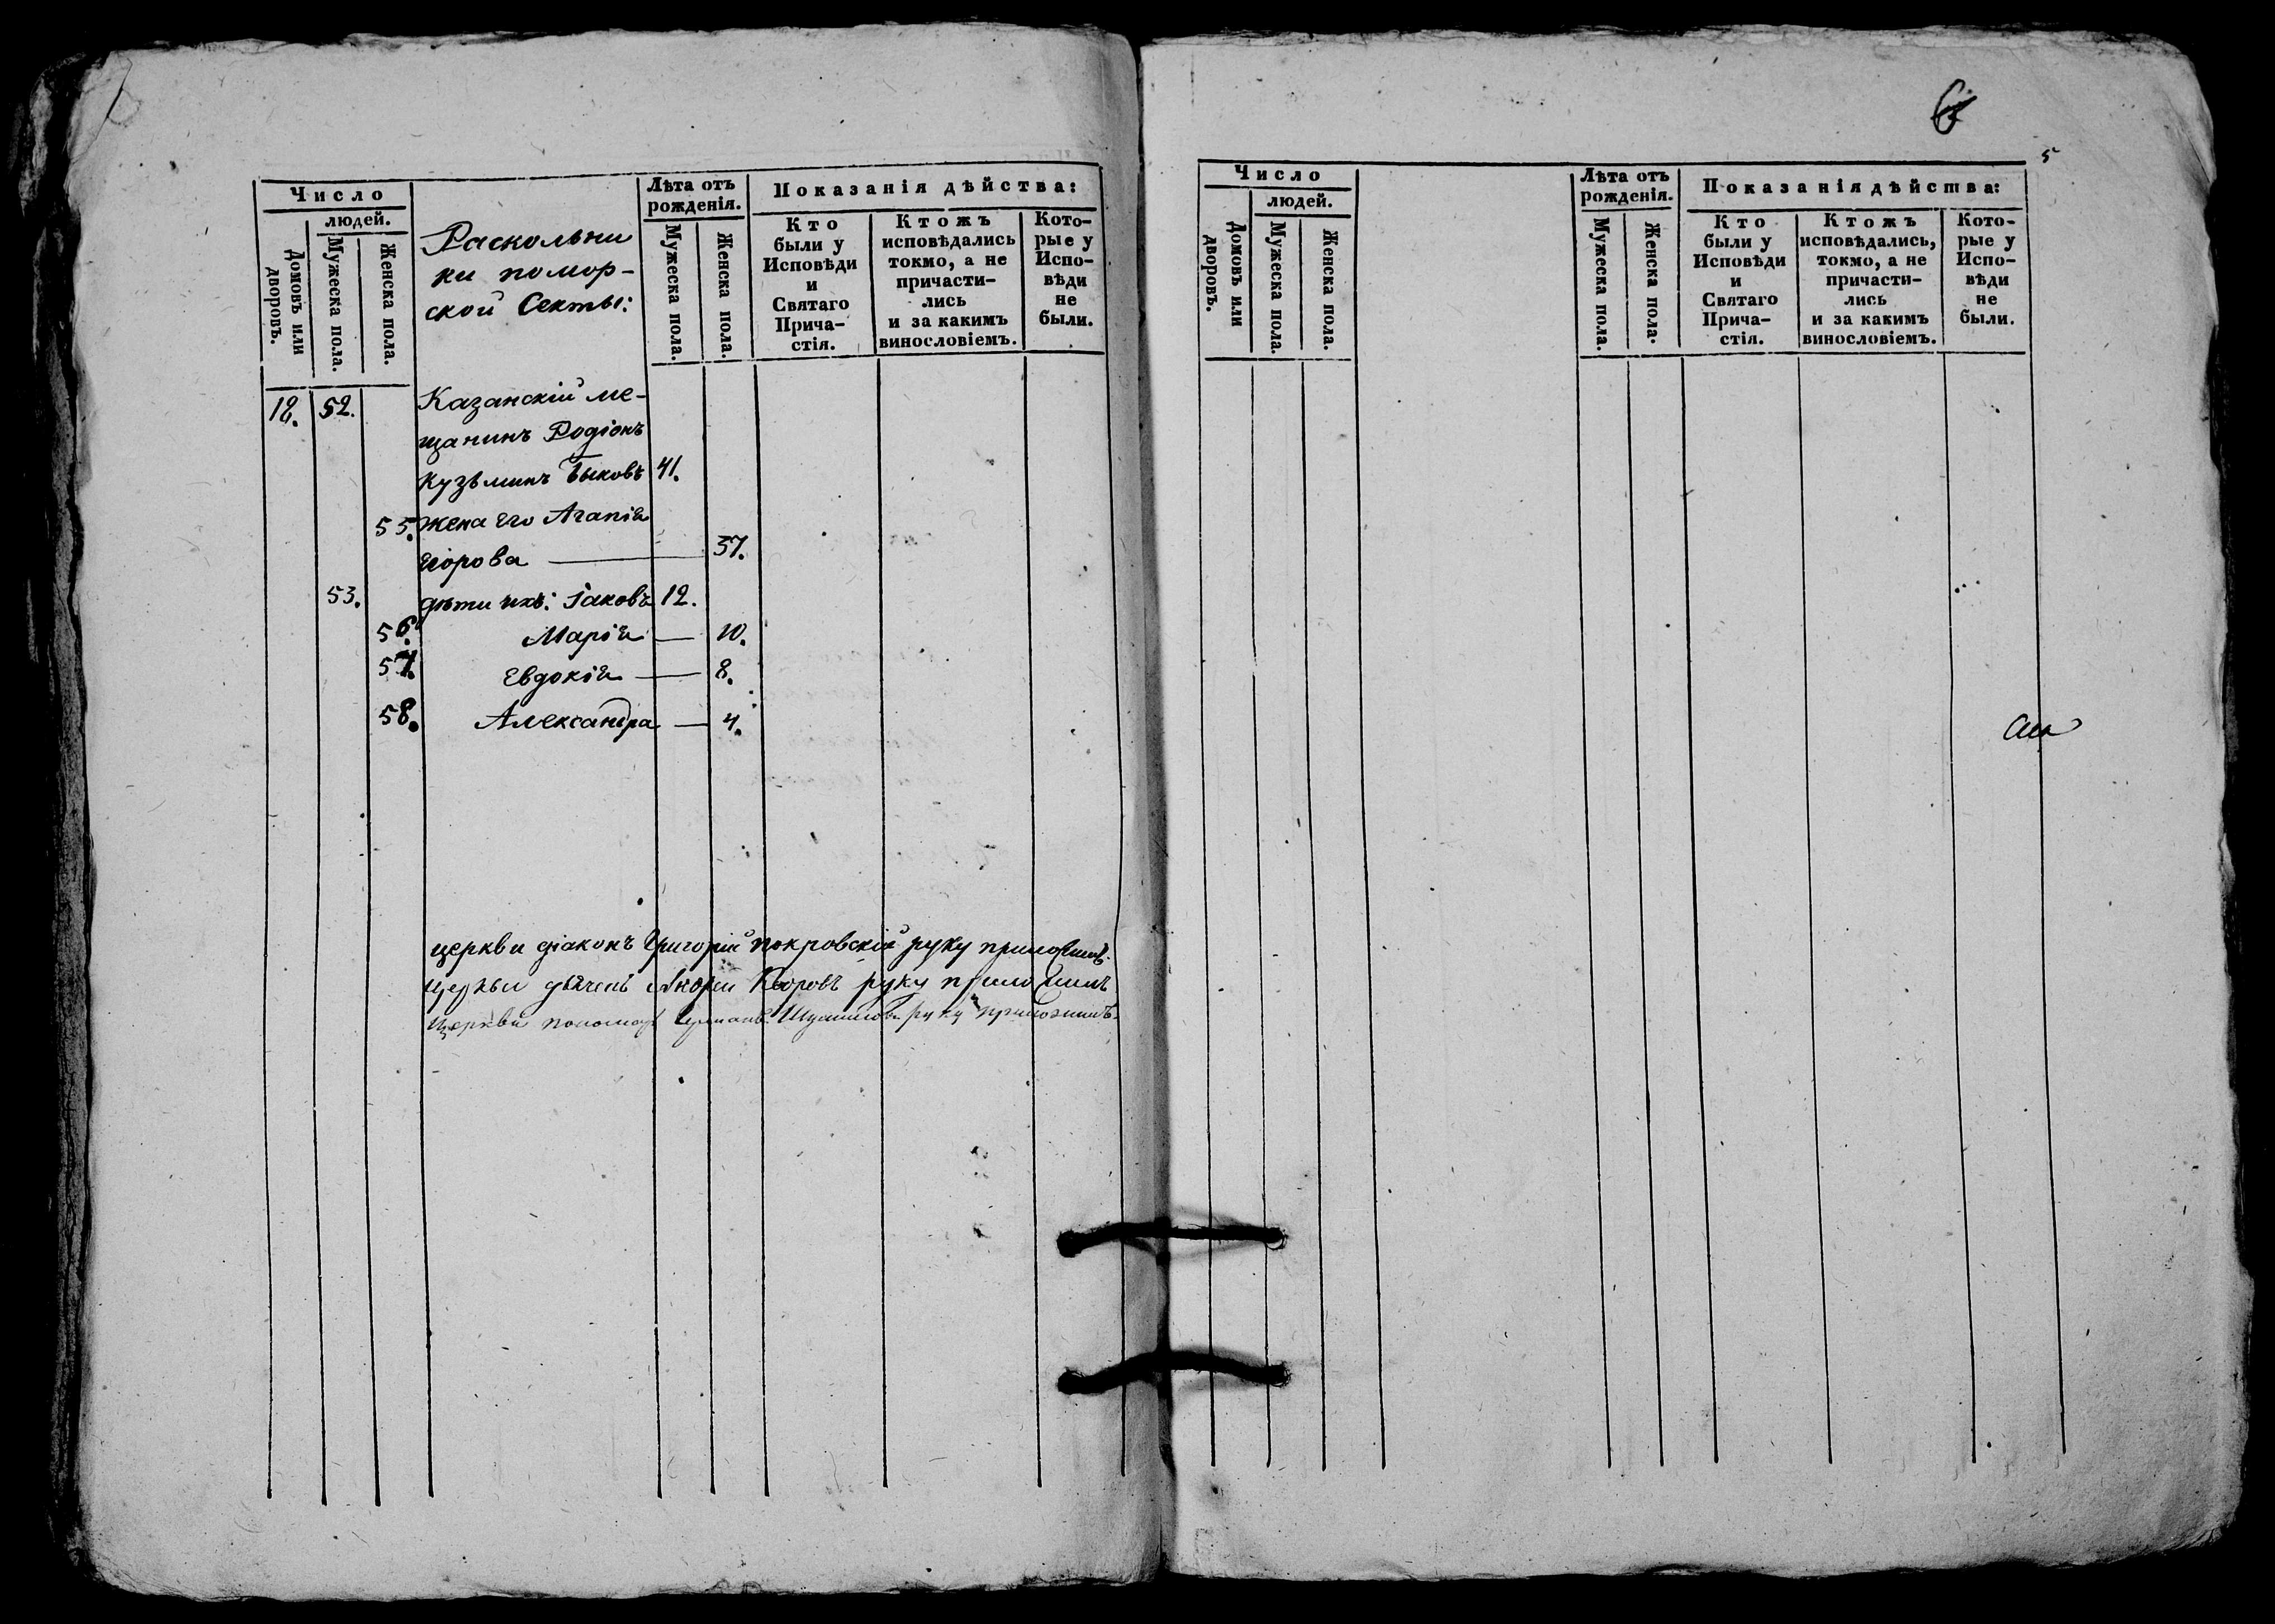 Число
людей.
Домовъ или дворовъ.
Мужеска пола.
Женска пола.
Раскольни
ки помор-
ской Секты:
Лѣта отъ
рожденія.
Мужеска пола.
Женска пола.
Показанія дѣйства:
Кто
были у
Исповѣди
и
Святаго
Прича-
стія.
Ктожъ
исповѣдались
токмо, а не
причасти-
лись
и за какимъ
винословіемъ.
Кото-
рые у
Испо-
вѣди
не
были.
12. 52. Казанскій ме-
щанинъ Родіонъ
Кузьминъ Быковъ 41.
55. жена его Агапія
Егорова — 37.
53. дѣти ихъ: Іаковъ 12.
56. Марія — 10.
57. Евдокія — 8.
58. Александра — 4.
церкви діаконъ Григорій Покровскій руку приложилъ.
Церкви дьячекъ Андреи руку приложилъ
Церкви пономарь руку приложилъ.
6
5
Число
людей.
Домовъ или дворовъ.
Мужеска пола.
Женска пола.
Лѣта отъ
рожденія.
Мужеска пола.
Женска пола.
Показанія дѣйства:
Кто
были у
Исповѣди
и
Святаго
Прича-
стія.
Ктожъ
исповѣдались,
токмо, а не
причасти-
лись
и за какимъ
винословіемъ.
Кото-
рые у
Испо-
вѣди
не
были.